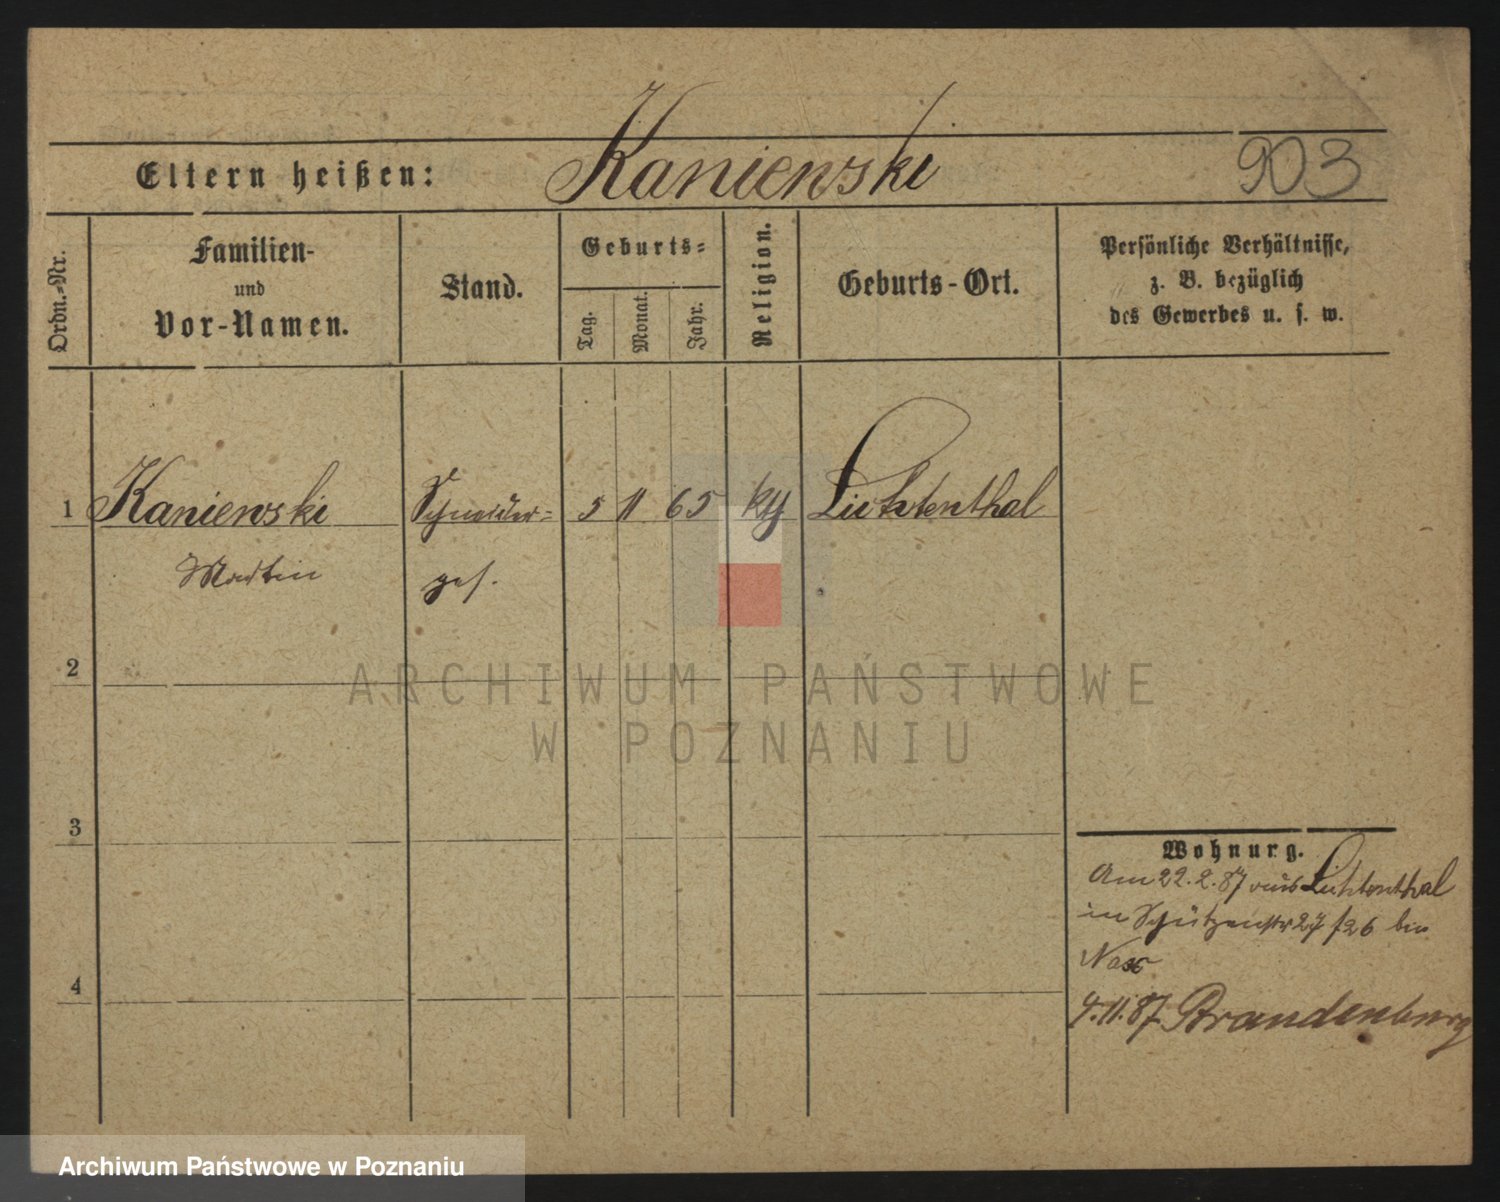 Eltern heißen: Kaniewski 903
Ordn.-Nr.
Familien-
und
Vor-Namen.
Stand.
Geburts-
Tag.
Monat.
Jahr.
Religion.
Geburts-Ort.
Persönliche Verhältnisse,
z. B. bezüglich
des Gewerbes u. s. w.
1 Kaniewski Schneider- 5 11 65 kth Lichtenthal
Martin ges.
2
3
4
Wohnung.
Am 22.2.87 aus Lichtenthal
in Schützenstr 27/26 bei
4.11.87 Brandenburg
ARCHIWUM PAŃSTWOWE
W POZNANIU
Archiwum Państwowe w Poznaniu